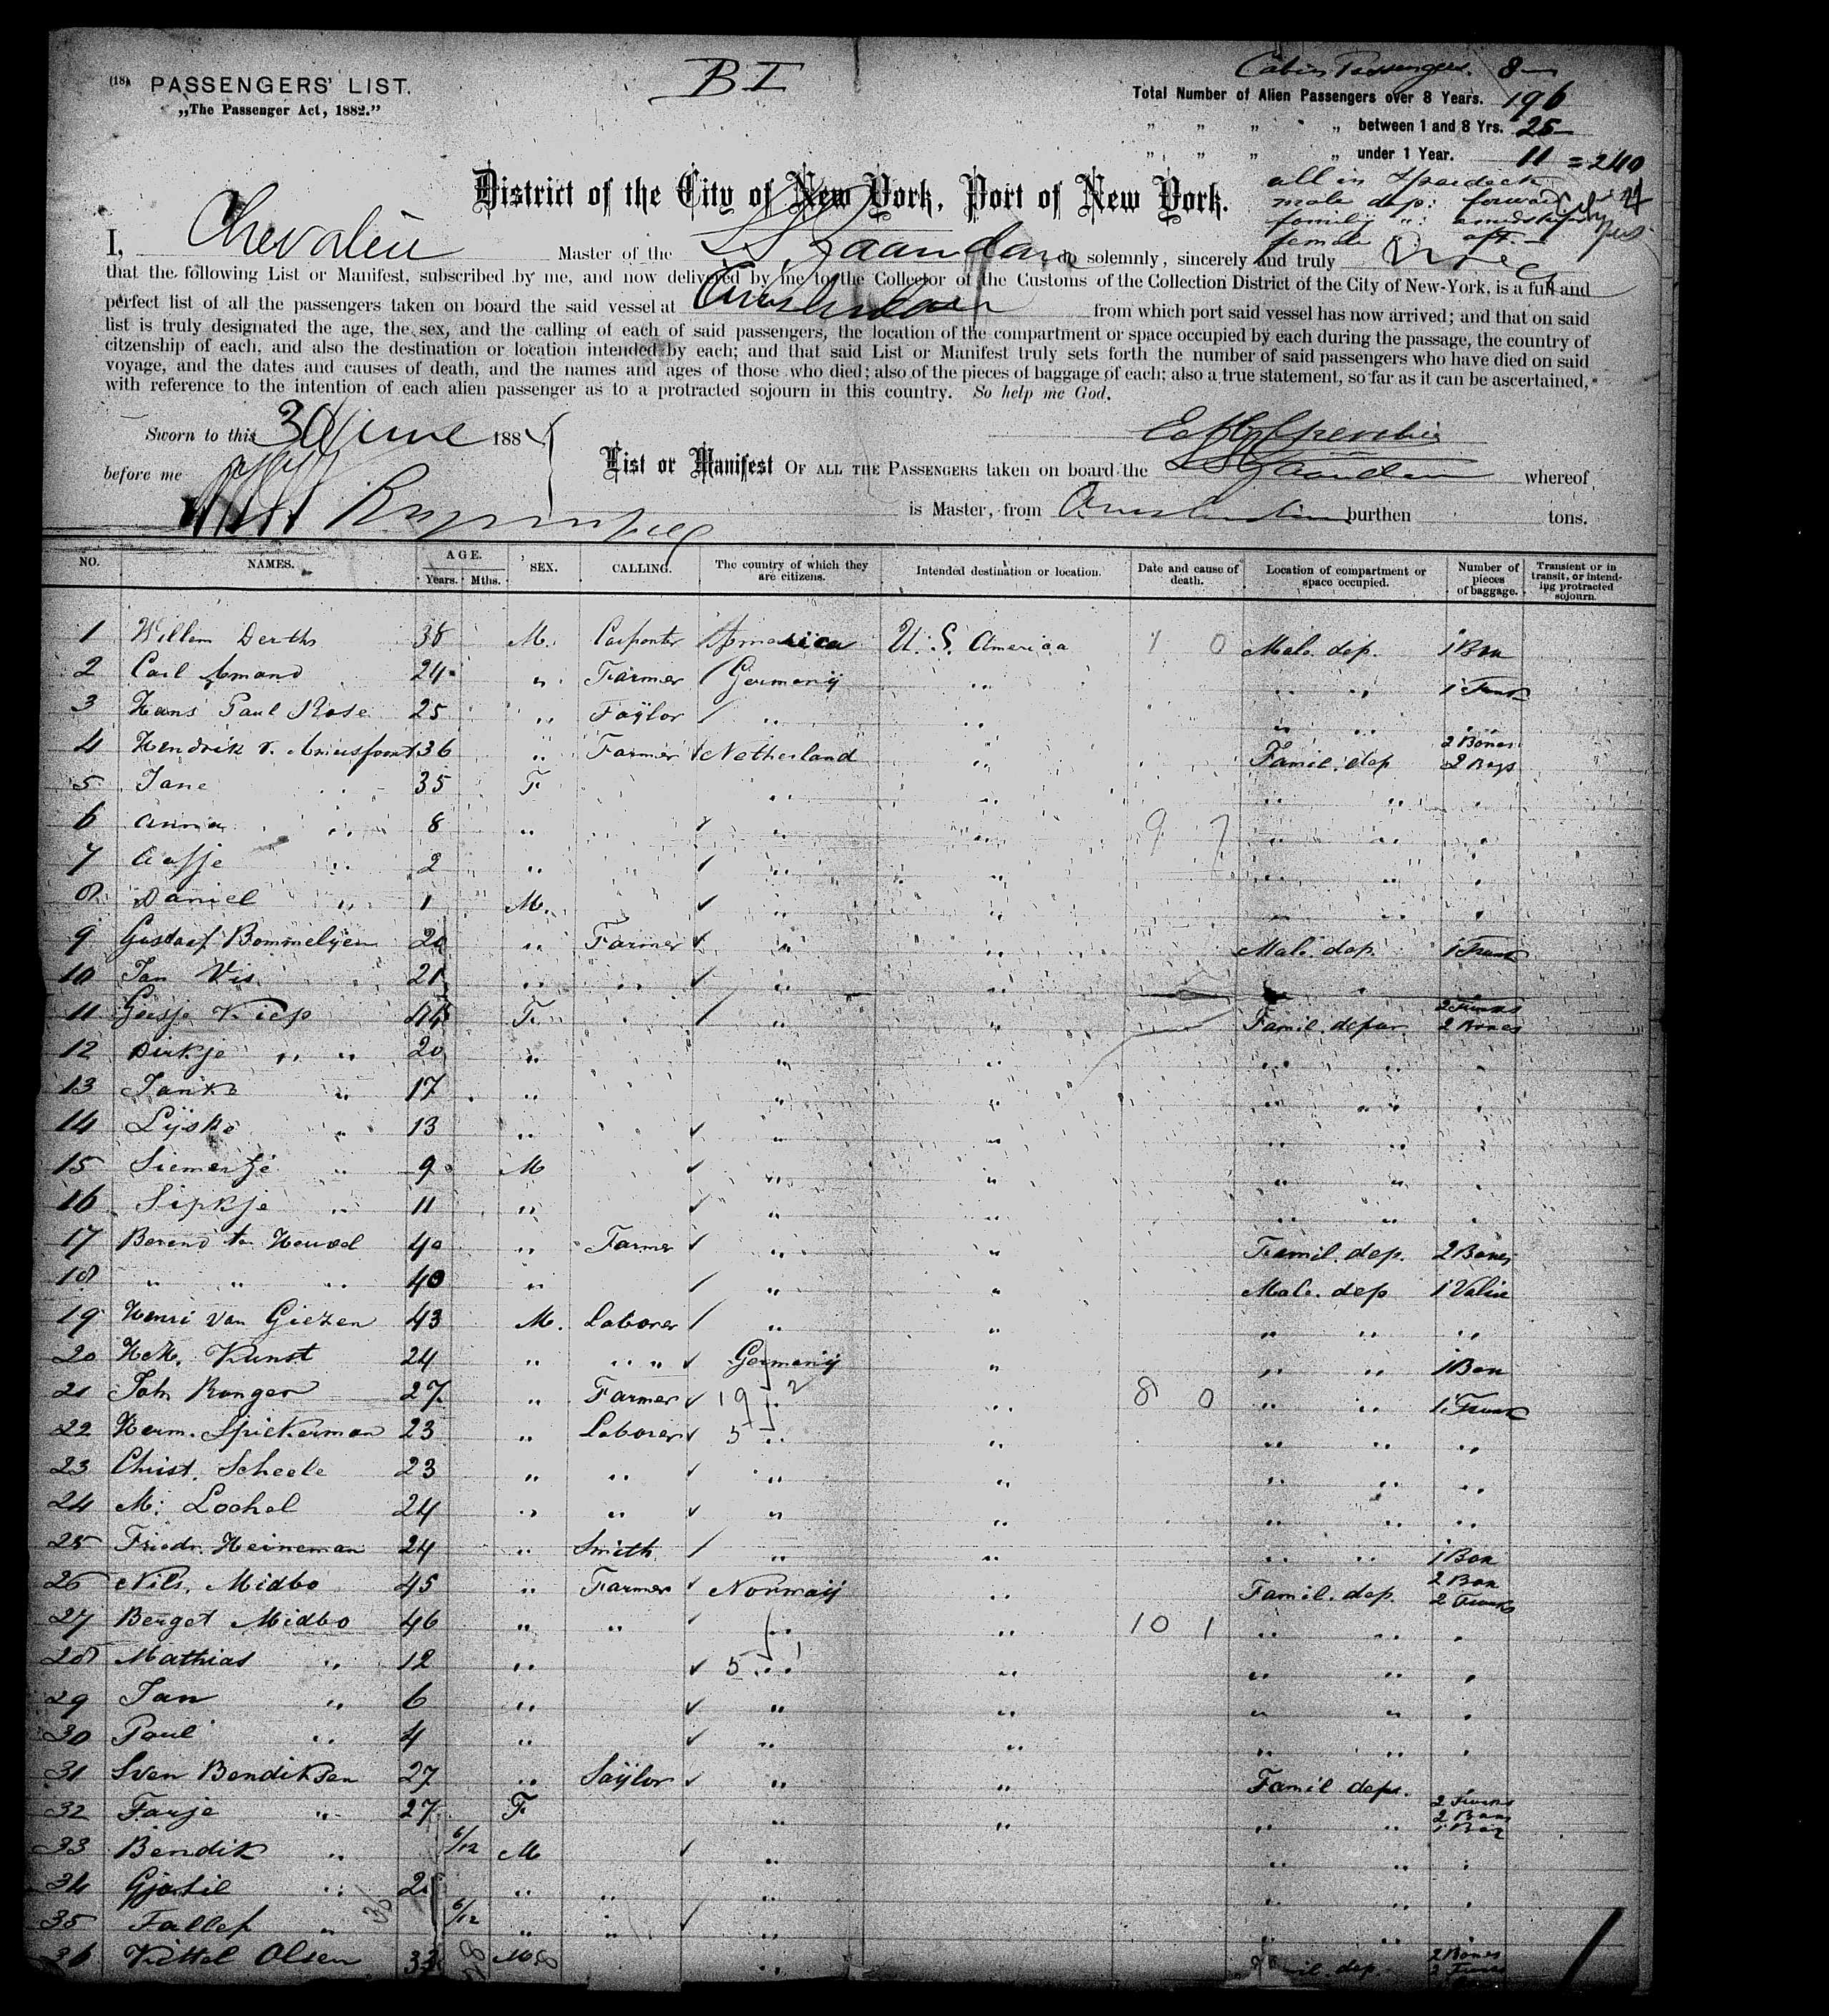 (18) PASSENGERS' LIST.
„The Passenger Act, 1882."
B I
Cabin Passengers. 8
Total Number of Alien Passengers over 8 Years. 196
„ „ „ „ between 1 and 8 Yrs. 25
„ „ „ „ under 1 Year. 11 = 240
all in
male dep: forward
family „: amidships
female „ aft.
District of the City of New York, Port of New York.
I, Chevalier Master of the SS Zaandam do solemnly, sincerely and truly
that the following List or Manifest, subscribed by me, and now delivered by me to the Collector of the Customs of the Collection District of the City of New-York, is a full and
perfect list of all the passengers taken on board the said vessel at Amsterdam from which port said vessel has now arrived; and that on said
list is truly designated the age, the sex, and the calling of each of said passengers, the location of the compartment or space occupied by each during the passage, the country of
citzenship of each, and also the destination or location intended by each; and that said List or Manifest truly sets forth the number of said passengers who have died on said
voyage, and the dates and causes of death, and the names and ages of those who died; also of the pieces of baggage of each; also a true statement, so far as it can be ascertained,
with reference to the intention of each alien passenger as to a protracted sojourn in this country. So help me God.
Sworn to this 30 June 188
before me
List or Manifest OF ALL THE PASSENGERS taken on board the SS Zaandam whereof
is Master, from Amsterdam burthen tons.
NO. NAMES. AGE. Years. Mths. SEX. CALLING. The country of which they are citizens. Intended destination or location. Date and cause of death. Location of compartment or space occupied. Number of pieces of baggage. Transient or in transit, or intending protracted sojourn.
1 Willem Derths 38 M. Carpenter America U. S. America 1 0 Male dep. 1 Box
2 Carl Amand 24 „ Farmer Germany „ „ „ 1 Trunk
3 Hans Paul Rose 25 „ Taylor „ „ „ „ „
4 Hendrik v. Amersfoort 36 „ Farmer Netherland „ Famil. dep 2 Boxes 2 Bags
5 Jane „ 35 F „ „ „ „ „
6 Anna „ 8 „ „ „ 9 7 „ „ „
7 Aafje „ 2 „ „ „ „ „ „
8 Daniel „ 1 M. „ „ „ „ „
9 Gustaaf Bommelyen 20 „ Farmer „ „ Male dep. 1 Trunk
10 Jan Vis 21 „ „ „ „ „
11 Geesje Kiep 45 F. „ „ Famil. depar 2 Trunks 2 Boxes
12 Dirkje „ „ 20 „ „ „ „ „ „
13 Janke „ 17 „ „ „ „ „ „
14 Lijske „ 13 „ „ „ „ „ „
15 Siemertje „ 9 M „ „ „ „ „
16 Sipkje „ 11 „ „ „ „ „ „
17 Berend ten Heuvel 40 „ Farmer „ „ Famil. dep. 2 Boxes
18 „ „ „ 40 „ „ „ Male. dep 1 Valise
19 Henri van Giezen 43 M. Laborer „ „ „ „ „
20 H.H. Kunst 24 „ „ „ Germany „ „ „ 1 Box
21 Joh Ranger 27 „ Farmer 19 2 „ „ 8 0 „ „ 1 Trunk
22 Herm. Spickerman 23 „ Laborer 5 „ „ „ „ „
23 Christ. Scheele 23 „ „ „ „ „ „ „
24 M. Lochel 24 „ „ „ „ „ „ „
25 Friedr. Heineman 24 „ Smith „ „ „ „ 1 Box
26 Nils. Midbo 45 „ Farmer Norway „ Famil. dep. 2 Box 2 Trunks
27 Berget Midbo 46 „ „ „ „ 10 1 „ „ „
28 Mathias „ 12 „ 5 „ 1 „ „ „ „
29 Jan „ 6 „ „ „ „ „ „
30 Paul „ 4 „ „ „ „ „ „
31 Sven Bendiksen 27 „ Saylor „ „ Famil dep.
32 Tarje „ 27 F „ „ „ „ 2 Trunks 2 Boxes 1 Bag
33 Bendik „ 6/12 M „ „ „ „
34 Gjatil „ 2 „ „ „ „ „ „
35 Tallef „ 6/12 „ „ „ „ „
36 Kittel Olsen 33 M. „ Famil. dep. 2 Boxes 2 Trunks